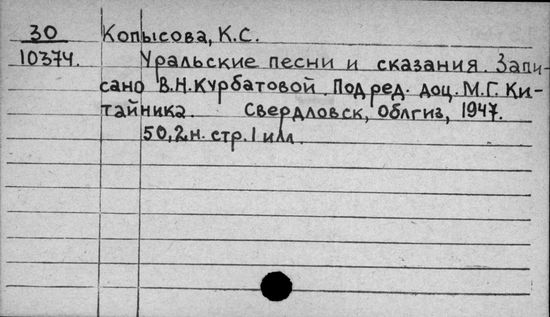 30 Копысова, К.С.
10374. Уральские песни и сказания. Запи-
сано В.Н.Курбатовой. Под ред. доц. М.Г. Ки-
тайника. Свердловск, Облгиз, 1947.
50,2н. стр. 1 илл.